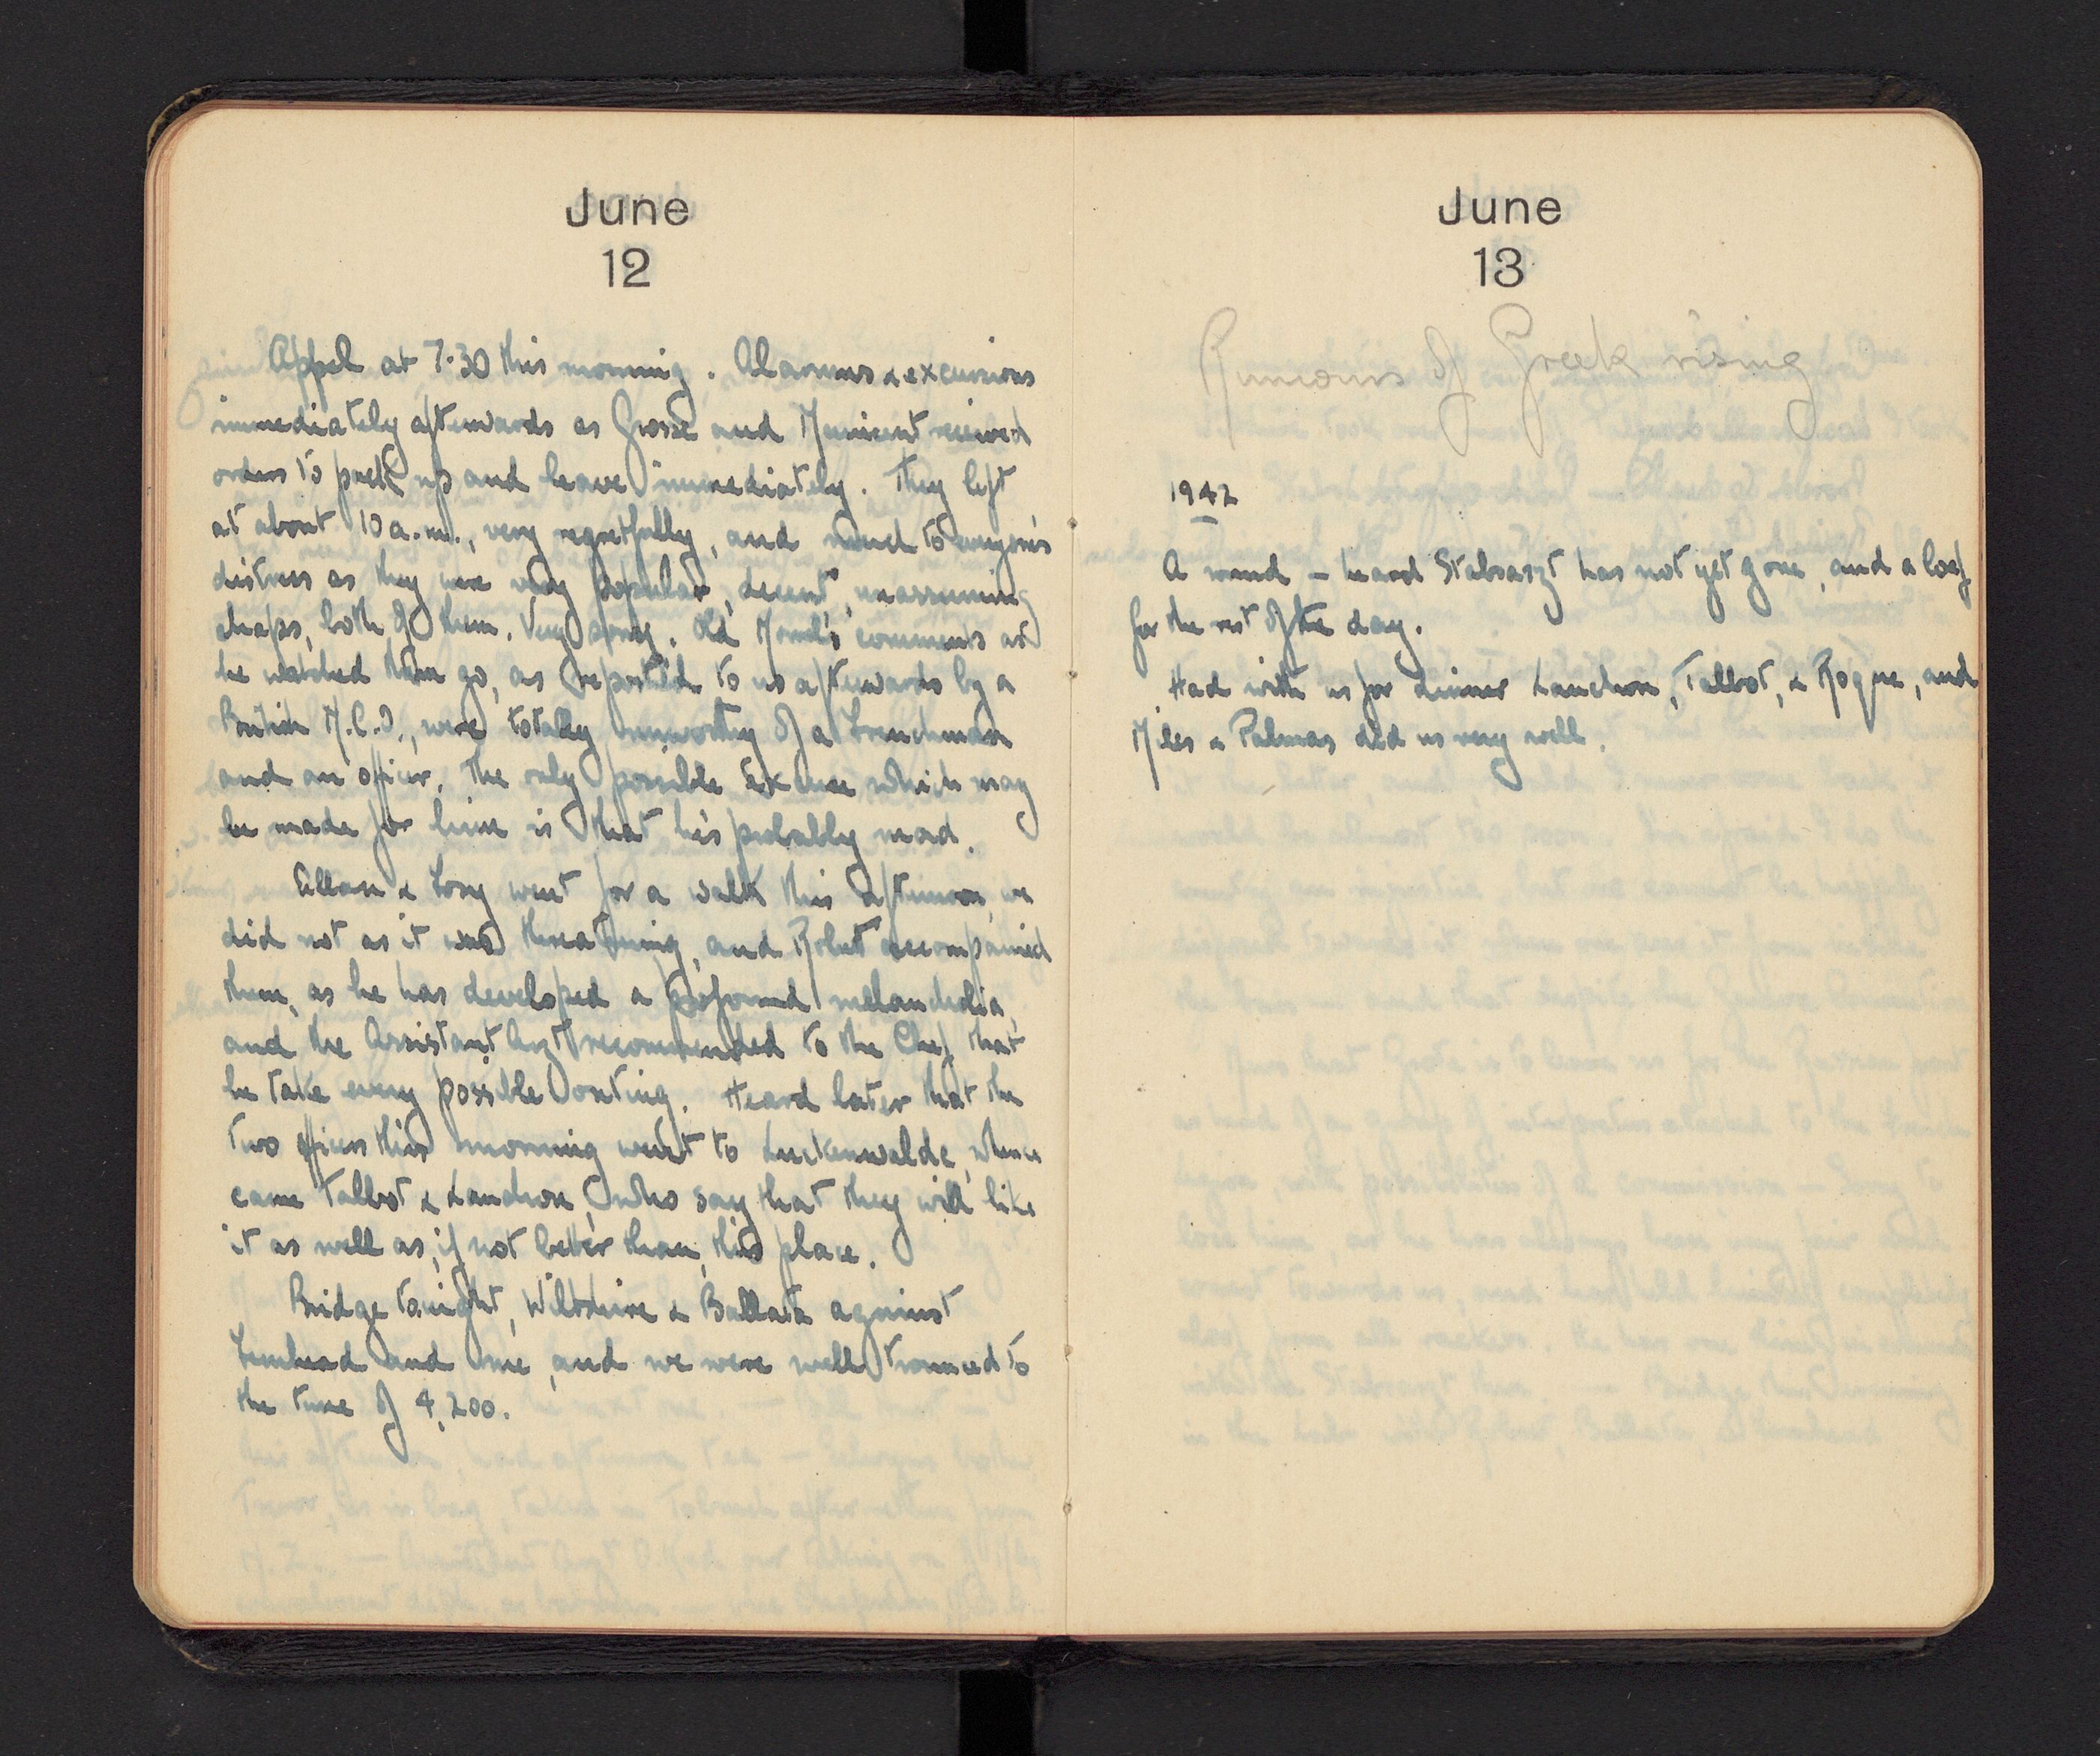 June
12
Appel at 7.30 this morning. Alarums & excursions
immediately afterwards as Grosse and Municent received
orders to pack up and leave immediately. They left
at about 10 a.m., very regretfully, and much to everyone's
distress as they were very popular, decent, unassuming
chaps, both of them. Very sorry. Old Morel's comments as
he watched them go, as reported to us afterwards by a
British M.O., were totally unworthy of a Frenchman
and an officer. The only possible excuse which may
be made for him is that he's probably mad.
Allan & Tony went for a walk this afternoon, we
did not as it was threatening, and Robert accompanied
them, as he has developed a profound melancholia,
and the Assistant Arzt recommended to the Chef that
he take every possible outing. Heard later that the
two officers this morning went to Luckenwalde, whence
came Talbot & who say that they will like
it as well as, if not better than, this place.
Bridge tonight, Wiltshire & Ballata against
and me, and we were well trounced to
the tune of 4,200.
June
13
Rumours of Greek rising
1942
A round – heard Stabsarzt has not yet gone, and a loaf
for the rest of the day.
Had with us for dinner Talbot, & Rogue, and
Miles & Palmas did us very well.